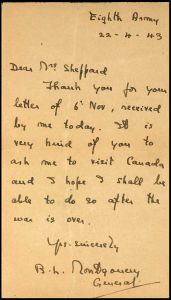 Eighth Army
22-4-43
Dear Mrs Sheppard
Thank you for your
letter of 6 Nov, received
by me today. It is
very kind of you to
ask me to visit Canada
and I hope I shall be
able to do so after the
war is over.
Yrs. sincerely
B. L. Montgomery
General